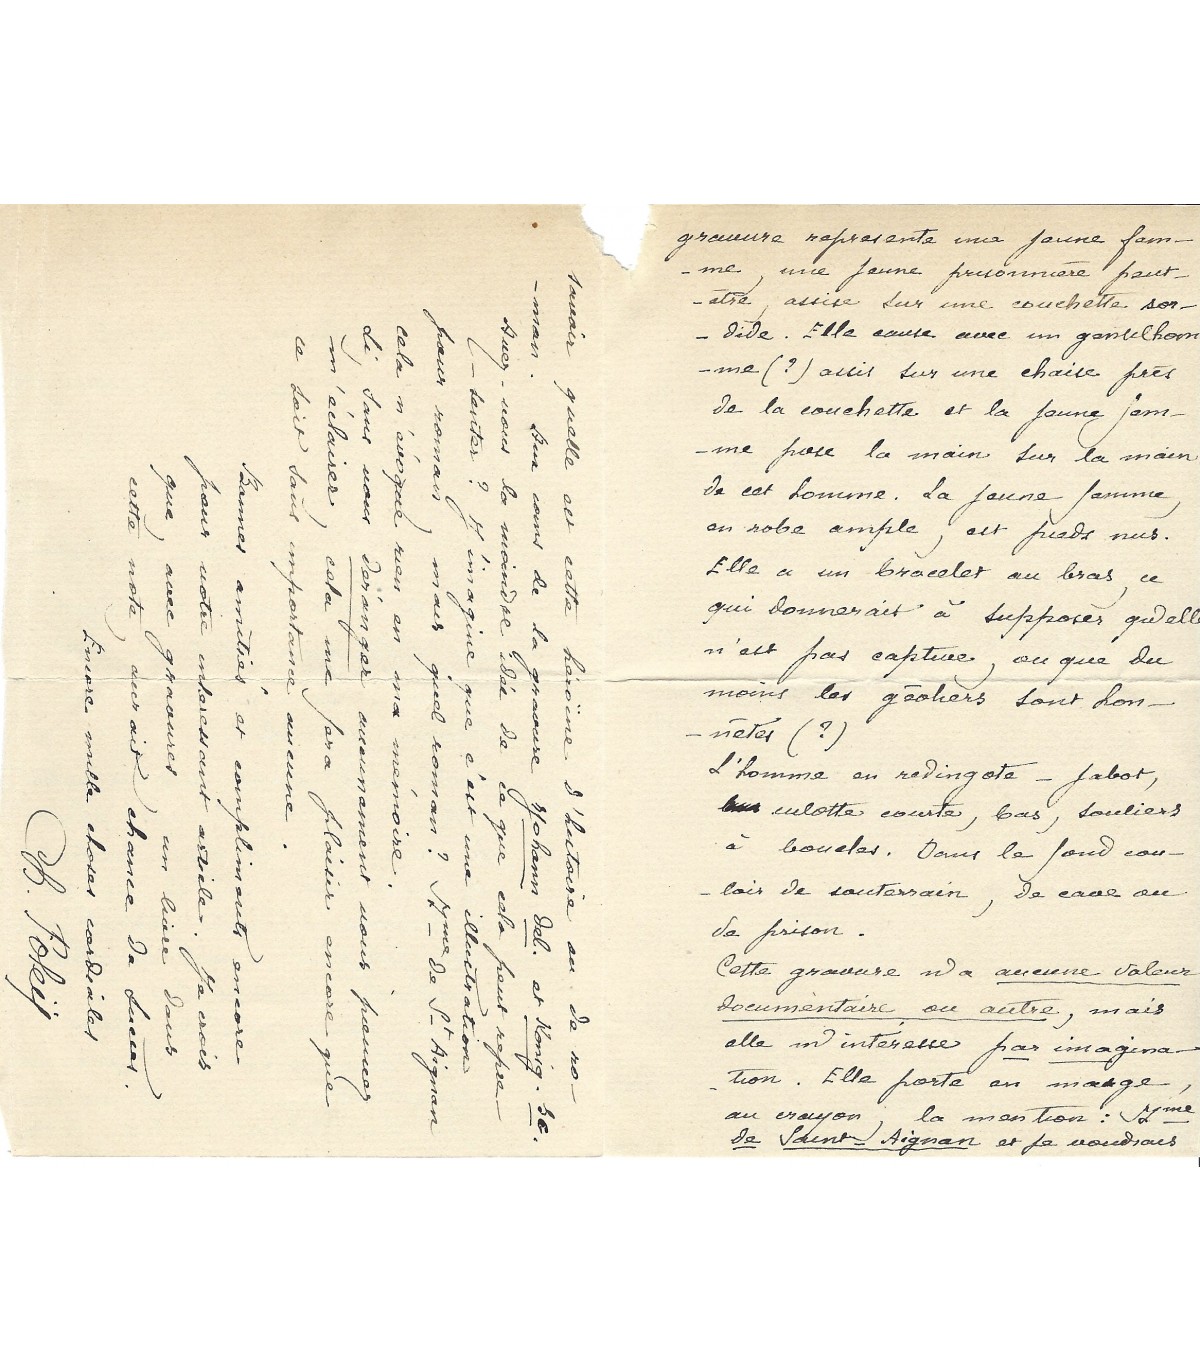 gravure represente une jeune fem-
-me, une jeune prisonnière peut-
-être, assise sur une couchette sor-
-dide. Elle cause avec un gentilhom
-me (?) assis sur une chaise près
de la couchette et la jeune fem-
-me pose la main sur la main
de cet homme. La jeune femme,
en robe ample, est pieds nus.
Elle a un bracelet au bras, ce
qui donnerait à supposer qu'elle
n'est pas captive, ou que du
moins les géoliers sont hon-
-nêtes (?)
L'homme en redingote - jabot,
culotte courte, bas, souliers
à boucles. Dans le fond cou-
-loir de souterrain, de cave ou
de prison.
Cette gravure n'a aucune valeur
documentaire ou autre, mais
elle m'intéresse par imagina-
-tion. Elle porte en marge,
au crayon, la mention:
de Saint-Aignan et je voudrais
savoir quelle est cette héroïne d'histoire ou de ro-
-man. Aux coins de la gravure Johann del. et König. sc.
Avez-vous la moindre idée de ce que cela peut repré-
(-senter? J'imagine que c'est une illustration
pour roman mais quel roman? de St Aignan
cela n'évoque rien en ma mémoire.
Si sans vous déranger aucunement vous pouvez
m'éclairer, cela me fera plaisir encore que
ce soit sans importance aucune.
Bonnes amitiés et compliments encore
pour votre intéressant article. Je crois
que avec gravures un livre dans
cette note aurait chance de succès.
Encore mille choses cordiales